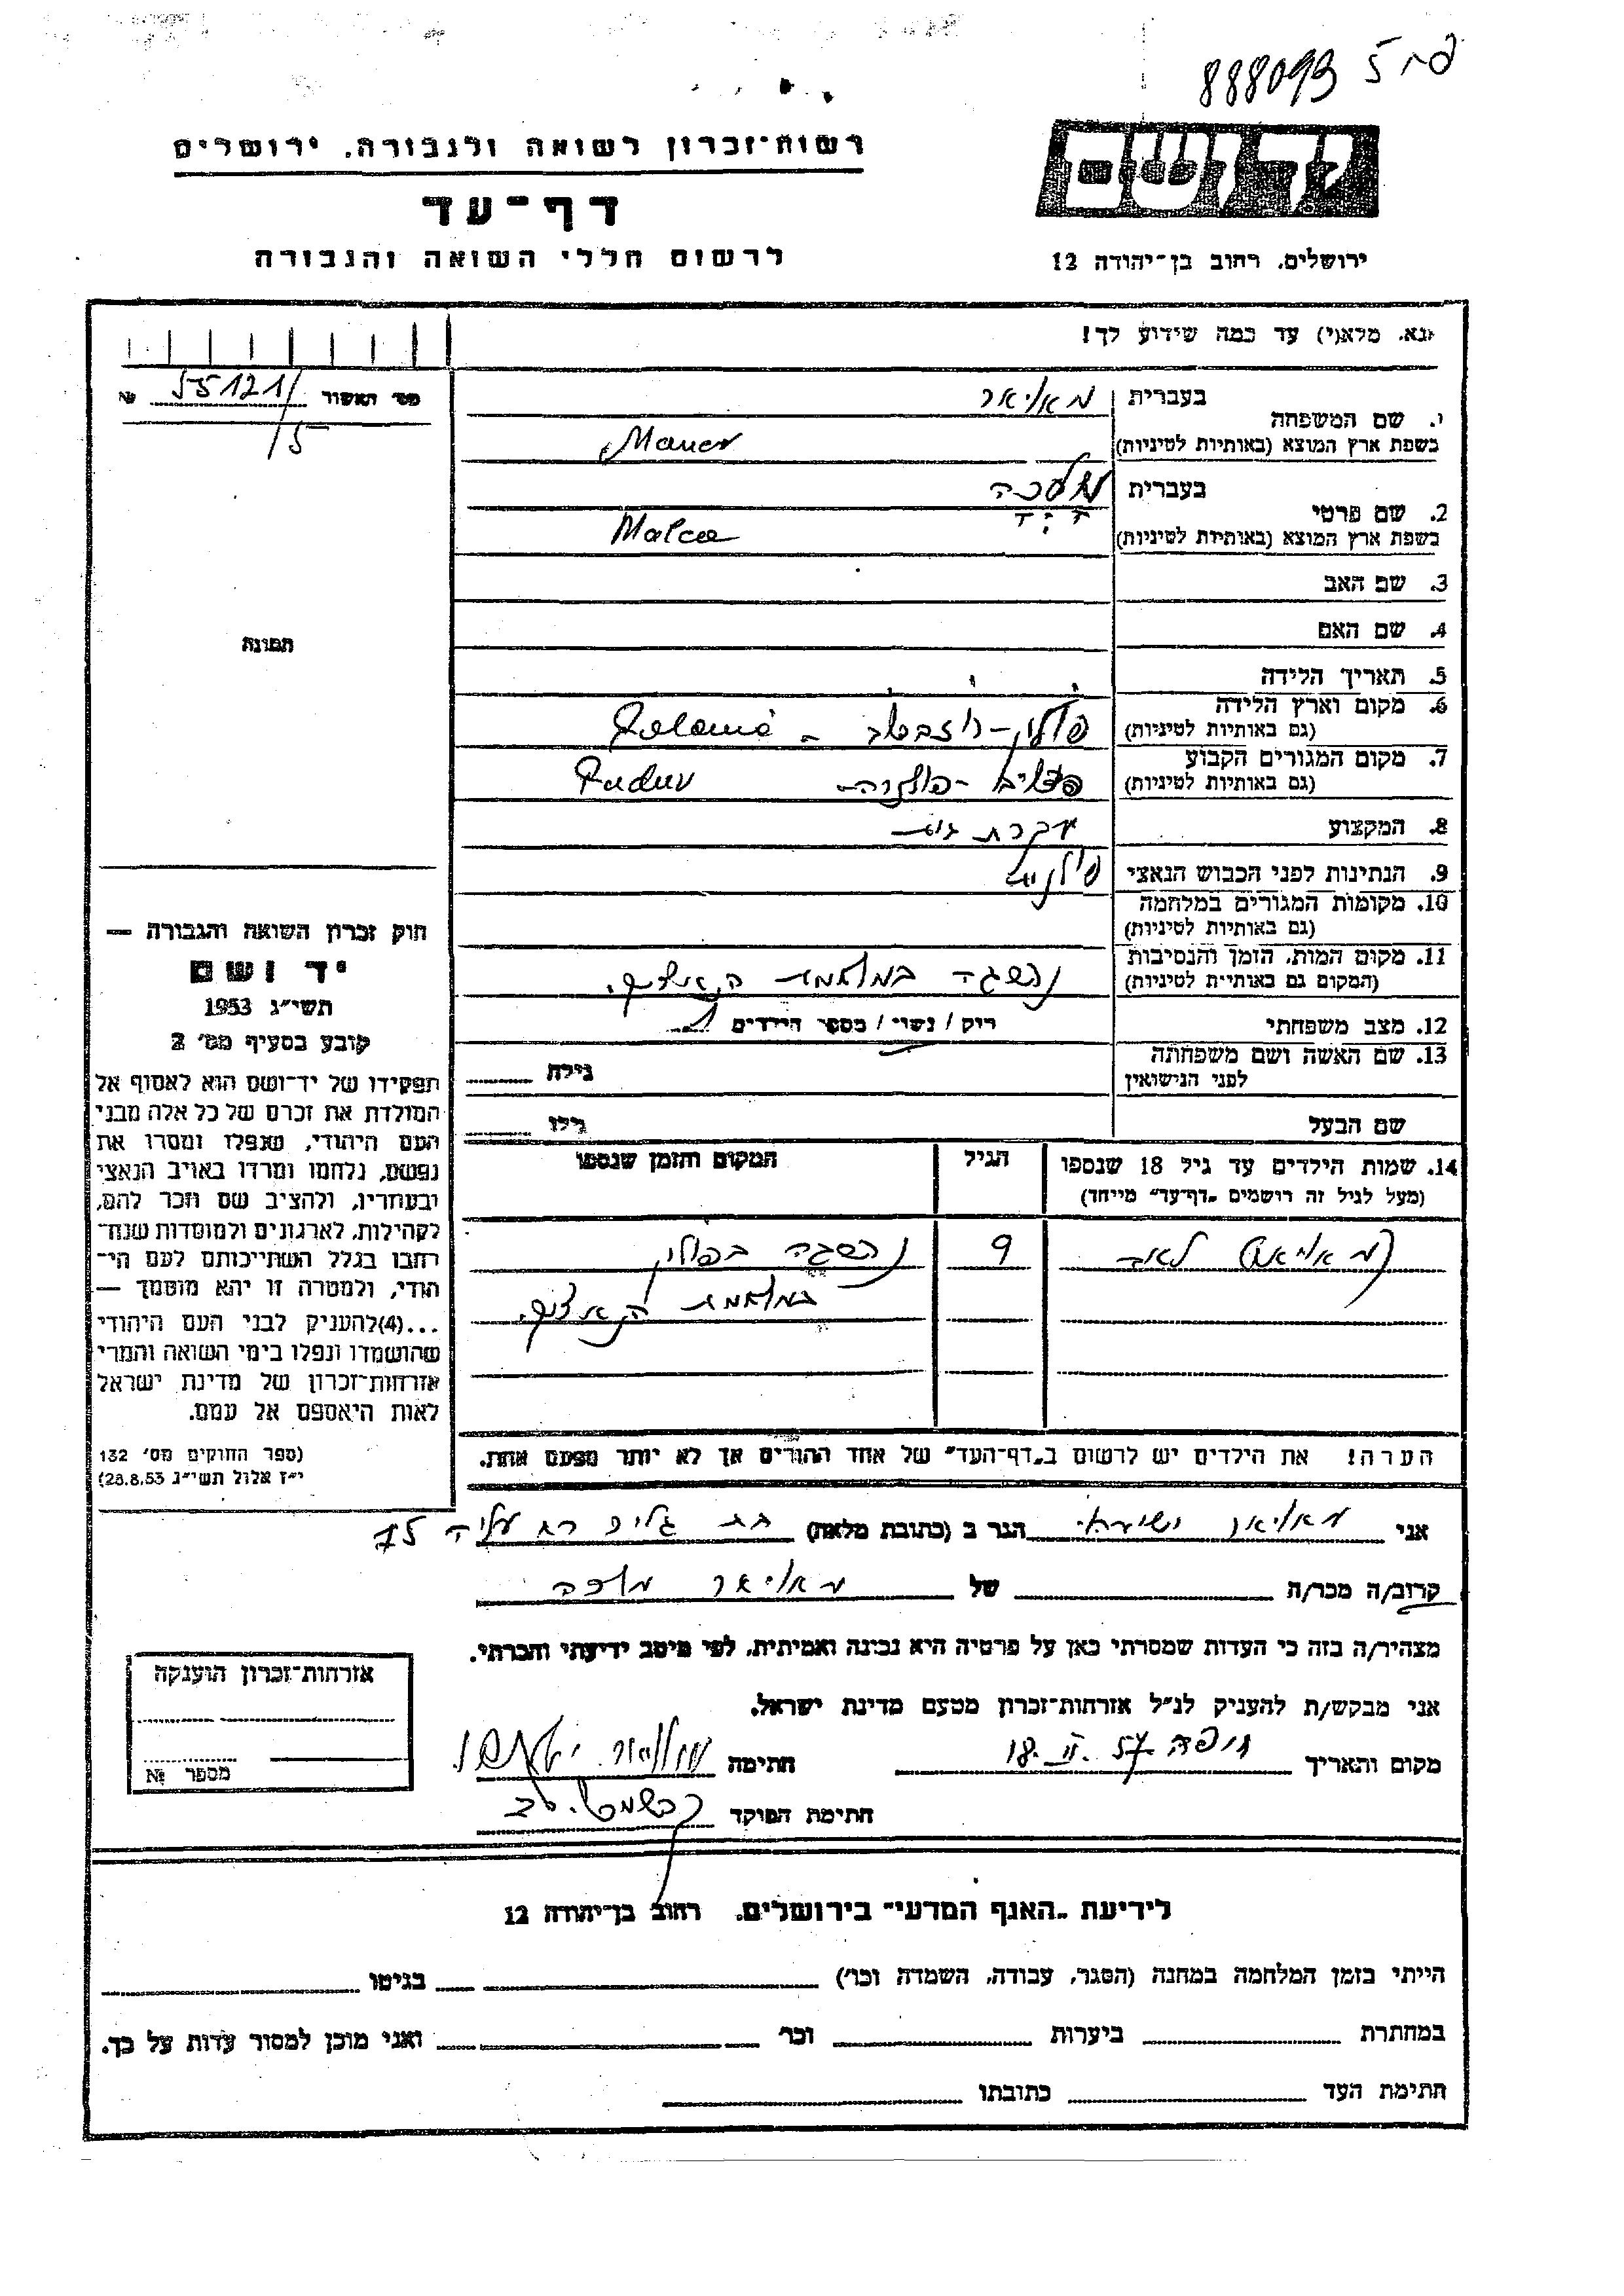 888093
ידושם
רשות־זכרון לשואה ולגבורה, ירושלים
דף־עד
לרשום חללי השואה והגבורה
ירושלים, רחוב בן־יהודה 12
נא, מלא(י) עד כמה שידוע לך!
מס׳ האשור 55121/ №
/5
1. שם המשפחה
בעברית מאיאר
בשפת ארץ המוצא (באותיות לטיניות) Maner
2. שם פרטי
בעברית מלכה
בשפת ארץ המוצא (באותיות לטיניות) Malca
3. שם האב
4. שם האם
תמונה
5. תאריך הלידה
6. מקום וארץ הלידה
(גם באותיות לטיניות) פולין -
7. מקום המגורים הקבוע
(גם באותיות לטיניות) - פולניה
8. המקצוע עקרת בית
9. הנתינות לפני הכבוש הנאצי פולנית
10. מקומות המגורים במלחמה
(גם באותיות לטיניות)
11. מקום המות, הזמן והנסיבות
(המקום גם באותיית לטיניות) נהשגה
12. מצב משפחתי רוק / נשוי / מספר הילדים 1
13. שם האשה ושם משפחתה
לפני הנישואין
גילה
שם הבעל גילו
14. שמות הילדים עד גיל 18 שנספו
(מעל לגיל זה רושמים „דף־עד״ מייחד)
הגיל
המקום והזמן שנספו
(מאיאר) לאה 9 נהשגה בפולין
הערה! את הילדים יש לרשום ב„דף־העד״ של אחד ההורים אך לא יותר מפעם אחת.
חוק זכרון השואה והגבורה —
יד ושם
תשי״ג 1953
קובע בסעיף מס׳ 2
תפקידו של יד־ושם הוא לאסוף אל
המולדת את זכרם של כל אלה מבני
העם היהודי, שנפלו ומסרו את
נפשם, נלחמו ומרדו באויב הנאצי
ובעוזריו, ולהציב שם וזכר להם,
לקהילות, לארגונים ולמוסדות שנח־
רחבו בגלל השתייכותם לעם הי־
הודי, ולמטרה זו יהא מוסמך —
...(4)להעניק לבני העם היהודי
שהושמדו ונפלו בימי השואה והמרי
אזרחות־זכרון של מדינת ישראל
לאות היאספם אל עמם.
(ספר החוקים מס׳ 132
י״ז אלול תשי״ג 28.8.53)
אני מאיאר הגר ב (כתובת מלאה) בת גלים רח עליה 75
קרוב/ה מכר/ה של מאיאר מלכה
מצהיר/ה בזה כי העדות שמסרתי כאן על פרטיה היא נכונה ואמיתית, לפי מיטב ידיעתי והכרתי.
אני מבקש/ת להעניק לנ״ל אזרחות־זכרון מטעם מדינת ישראל.
מקום ותאריך חיפה 18. II. 57 חתימה
חתימת הפוקד
אזרחות־זכרון הוענקה
מספר №
לידיעת „האגף המדעי״ בירושלים, רחוב בן־יהודה 12
הייתי בזמן המלחמה במחנה (הסגר, עבודה, השמדה וכו׳) בגיטו
במחתרת ביערות וכו׳ ואני מוכן למסור עדות על כך.
חתימת העד כתובתו